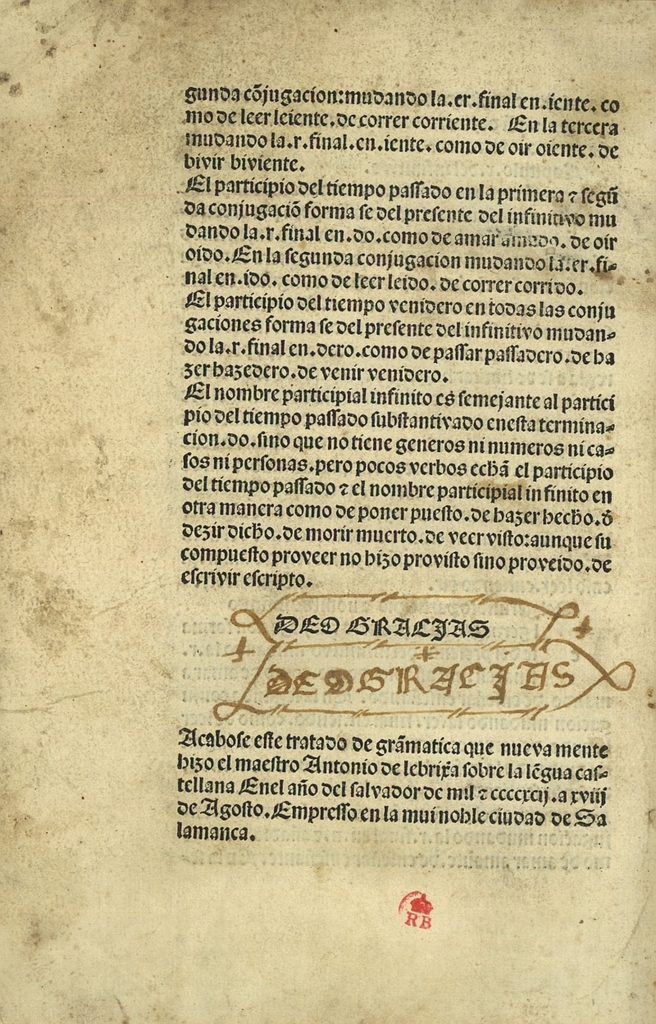 gunda cõjugacion:mudando la.er.final en.iente.co
mo de leer leiente.de correr corriente. En la tercera
mudando la.r.final.en.iente.como de oir oiente.de
bivir biviente.
El participio del tiempo passado en la primera ⁊ segũ
da conjugaciõ forma se del presente del infinitivo mu
dando la.r.final en.do.como de amar amado.de oir
oido.En la segunda conjugacion mudando la.er.fi-
nal en.ido.como de leer leido.de correr corrido.
El participio del tiempo venidero en todas las conju
gaciones forma se del presente del infinitivo mudan-
do la.r.final en.dero.como de passar passadero.de ha
zer hazedero.de venir venidero.
El nombre participial infinito es semejante al partici
pio del tiempo passado substantivado enesta termina-
cion.do.sino que no tiene generos ni numeros ni ca-
sos ni personas.pero pocos verbos echã el participio
del tiempo passado ⁊ el nombre participial infinito en
otra manera como de poner puesto.de hazer hecho.õ
dezir dicho.de morir muerto.de veer visto:aunque su
compuesto proveer no hizo provisto sino proveido.de
escrivir escripto.
DEO GRACIAS
DEO GRACIAS
Acabose este tratado de grãmatica que nueva mente
hizo el maestro Antonio de lebrixa sobre la lẽgua cas-
tellana Enel año del salvador de mil ⁊ ccccxcij.a xviij
de Agosto.Empresso en la mui noble ciudad de Sa
lamanca.
RB